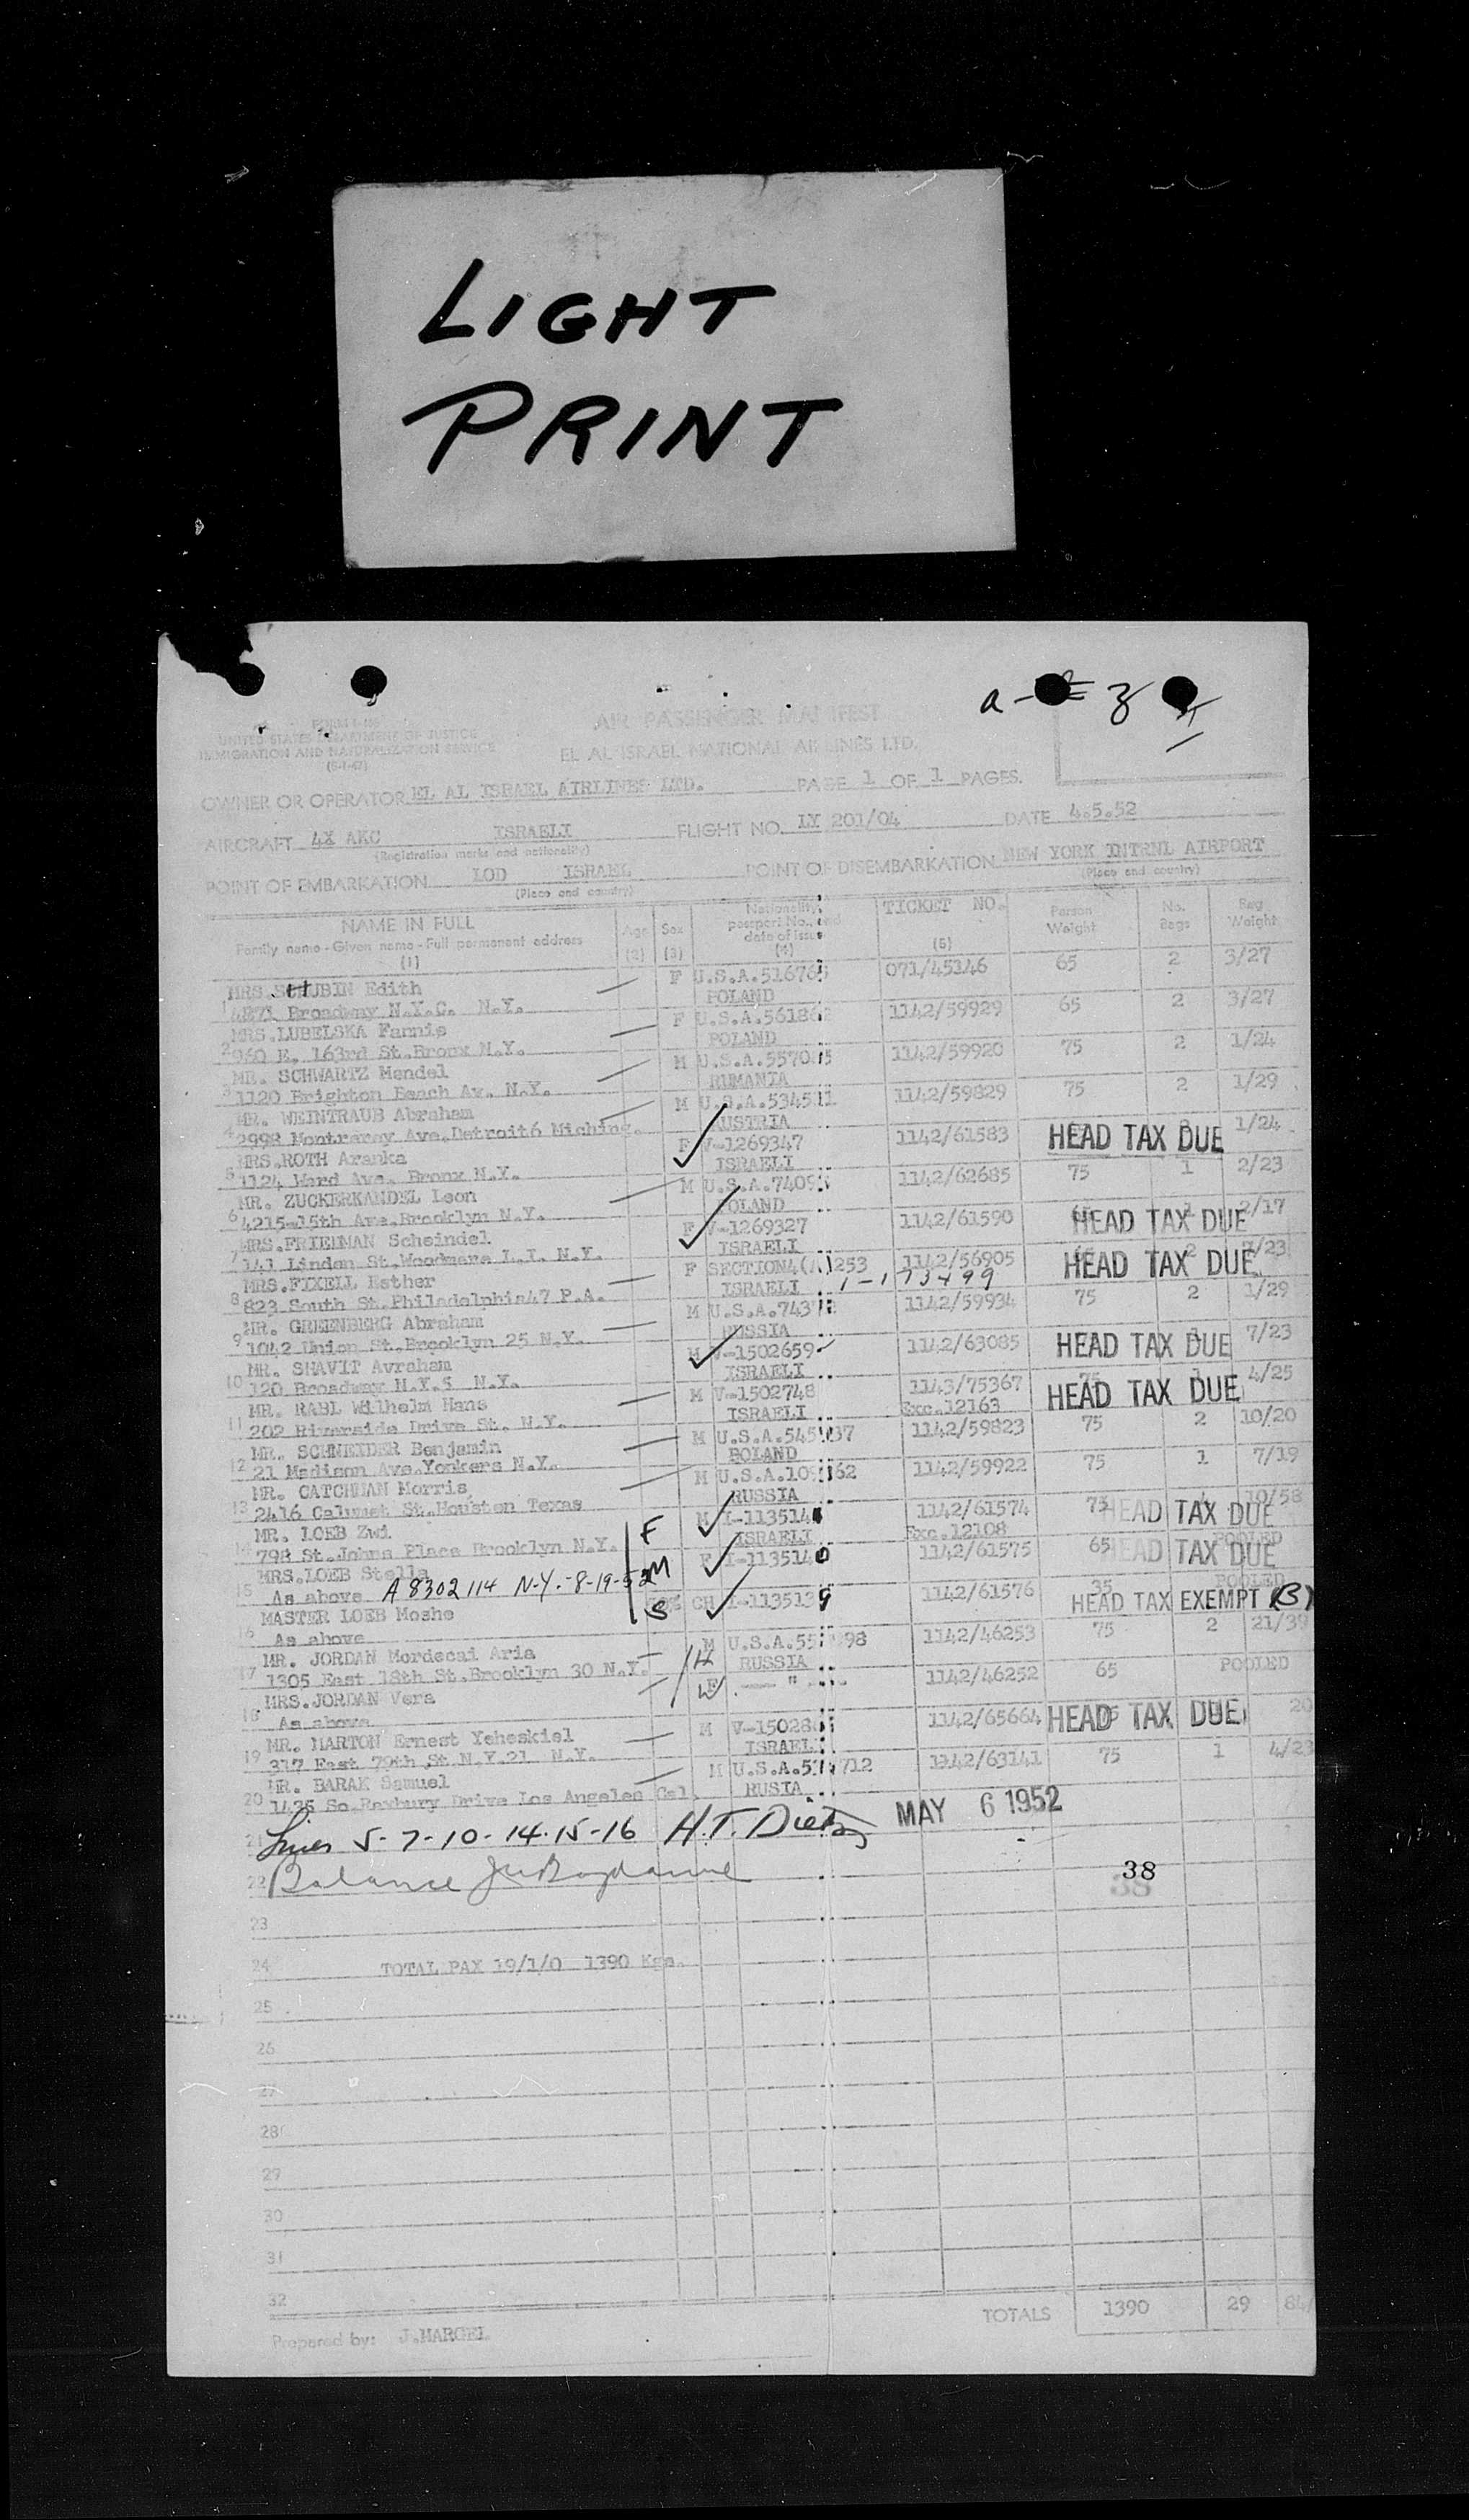 LIGHT
PRINT
UNITED STATES DEPARTMENT OF JUSTICE
IMMIGRATION AND NATURALIZATION SERVICE
AIR PASSENGER MANIFEST
EL AL ISRAEL NATIONAL AIRLINES LTD.
OWNER OR OPERATOR EL AL ISRAEL AIRLINES LTD. PAGE 1 OF 1 PAGES.
AIRCRAFT 4X AKC ISRAELI FLIGHT NO. LY 201/04 DATE 4.5.52
(Registration marks and nationality)
POINT OF EMBARKATION LOD ISRAEL POINT OF DISEMBARKATION NEW YORK INTRNL AIRPORT
(Place and country) (Place and country)
NAME IN FULL Age Sex Nationality, passport No., and date of issue TICKET NO. Person Weight No. Bags Bag Weight
Family name - Given name - Full permanent address
(1) (2) (3) (4) (5)
MRS. SCHUBIN Edith F U.S.A. 071/45146 65 2 3/27
1 4871 Broadway N.Y.C. N.Y. POLAND
MRS. LUBELSKA Fannie F U.S.A. 1142/59929 65 2 3/27
2 960 E. 163rd St. Bronx N.Y. POLAND
MR. SCHWARTZ Mendel M U.S.A. 1142/59920 75 2 1/24
3 1120 Brighton Beach Av. N.Y. RUMANIA
MR. WEINTRAUB Abraham M U.S.A. 1142/59829 75 2 1/29
4 2998 Ave. Detroit6 AUSTRIA
MRS. ROTH Aranka F V-1269347 1142/61583 HEAD TAX DUE 1/24
5 1124 Ward Ave. Bronx N.Y. ISRAELI
MR. ZUCKERKANDEL Leon M U.S.A. 1142/62685 75 1 2/23
6 4215-15th Ave. Brooklyn N.Y. POLAND
MRS. FRIEDMAN Scheindel F V-1269327 1142/61590 HEAD TAX DUE 2/17
7 141 Linden St. Woodmere L.I. N.Y. ISRAELI
MRS. FIXELL Esther F SECTION4(A)253 1142/56905 HEAD TAX DUE
8 823 South St. Philadelphia47 P.A. ISRAELI
MR. GREENBERG Abraham M U.S.A. 1142/59934 75 2 1/29
9 1042 Union St. Brooklyn 25 N.Y. RUSSIA
MR. SHAVIT Avraham M V-1502659 1142/63085 HEAD TAX DUE 7/23
10 120 Broadway N.Y.5 N.Y. ISRAELI
MR. RABL Wilhelm Hans M V-1502748 1143/75367 HEAD TAX DUE 4/25
11 202 Riverside Drive St. N.Y. ISRAELI Exc.12163
MR. SCHNEIDER Benjamin M U.S.A. 1142/59823 75 2 10/20
12 21 Madison Ave. Yonkers N.Y. POLAND
MR. CATCHMAN Morris M U.S.A. 1142/59922 75 1 7/19
13 2416 Calumet St. Houston Texas RUSSIA
MR. LOEB Zwi F M 1142/61574 75 HEAD TAX DUE 10/58
14 798 St. Johns Place Brooklyn N.Y. ISRAELI Exc.12108
MRS. LOEB Stella M F I-1135140 1142/61575 65 HEAD TAX DUE POOLED
15 As above A 8302114 N.Y. -8-19-52
MASTER LOEB Moshe S CH I-1135139 1142/61576 35 HEAD TAX EXEMPT (3) POOLED
16 As above
MR. JORDAN Mordecai Aria H M U.S.A. 1142/46253 75 2 21/39
17 1305 East 18th St. Brooklyn 30 N.Y. RUSSIA
MRS. JORDAN Vera W F " 1142/46252 65 POOLED
18 As above
MR. MARTON Ernest Yeheskiel M 1142/65664 HEAD TAX DUE 20
19 317 East 79th St. N.Y.21 N.Y. ISRAELI
MR. BARAK Samuel M U.S.A. 1142/63141 75 1 4/23
20 1426 So. Roxbury Drive Los Angeles Cal. RUSIA
21 Lines 5-7-10-14-15-16 H.T. MAY 6 1952
22 Balance 38
23
24 TOTAL PAX 19/1/0 1390 Kgs.
25
26
27
28
29
30
31
32
TOTALS 1390 29
Prepared by: J.MARGEL